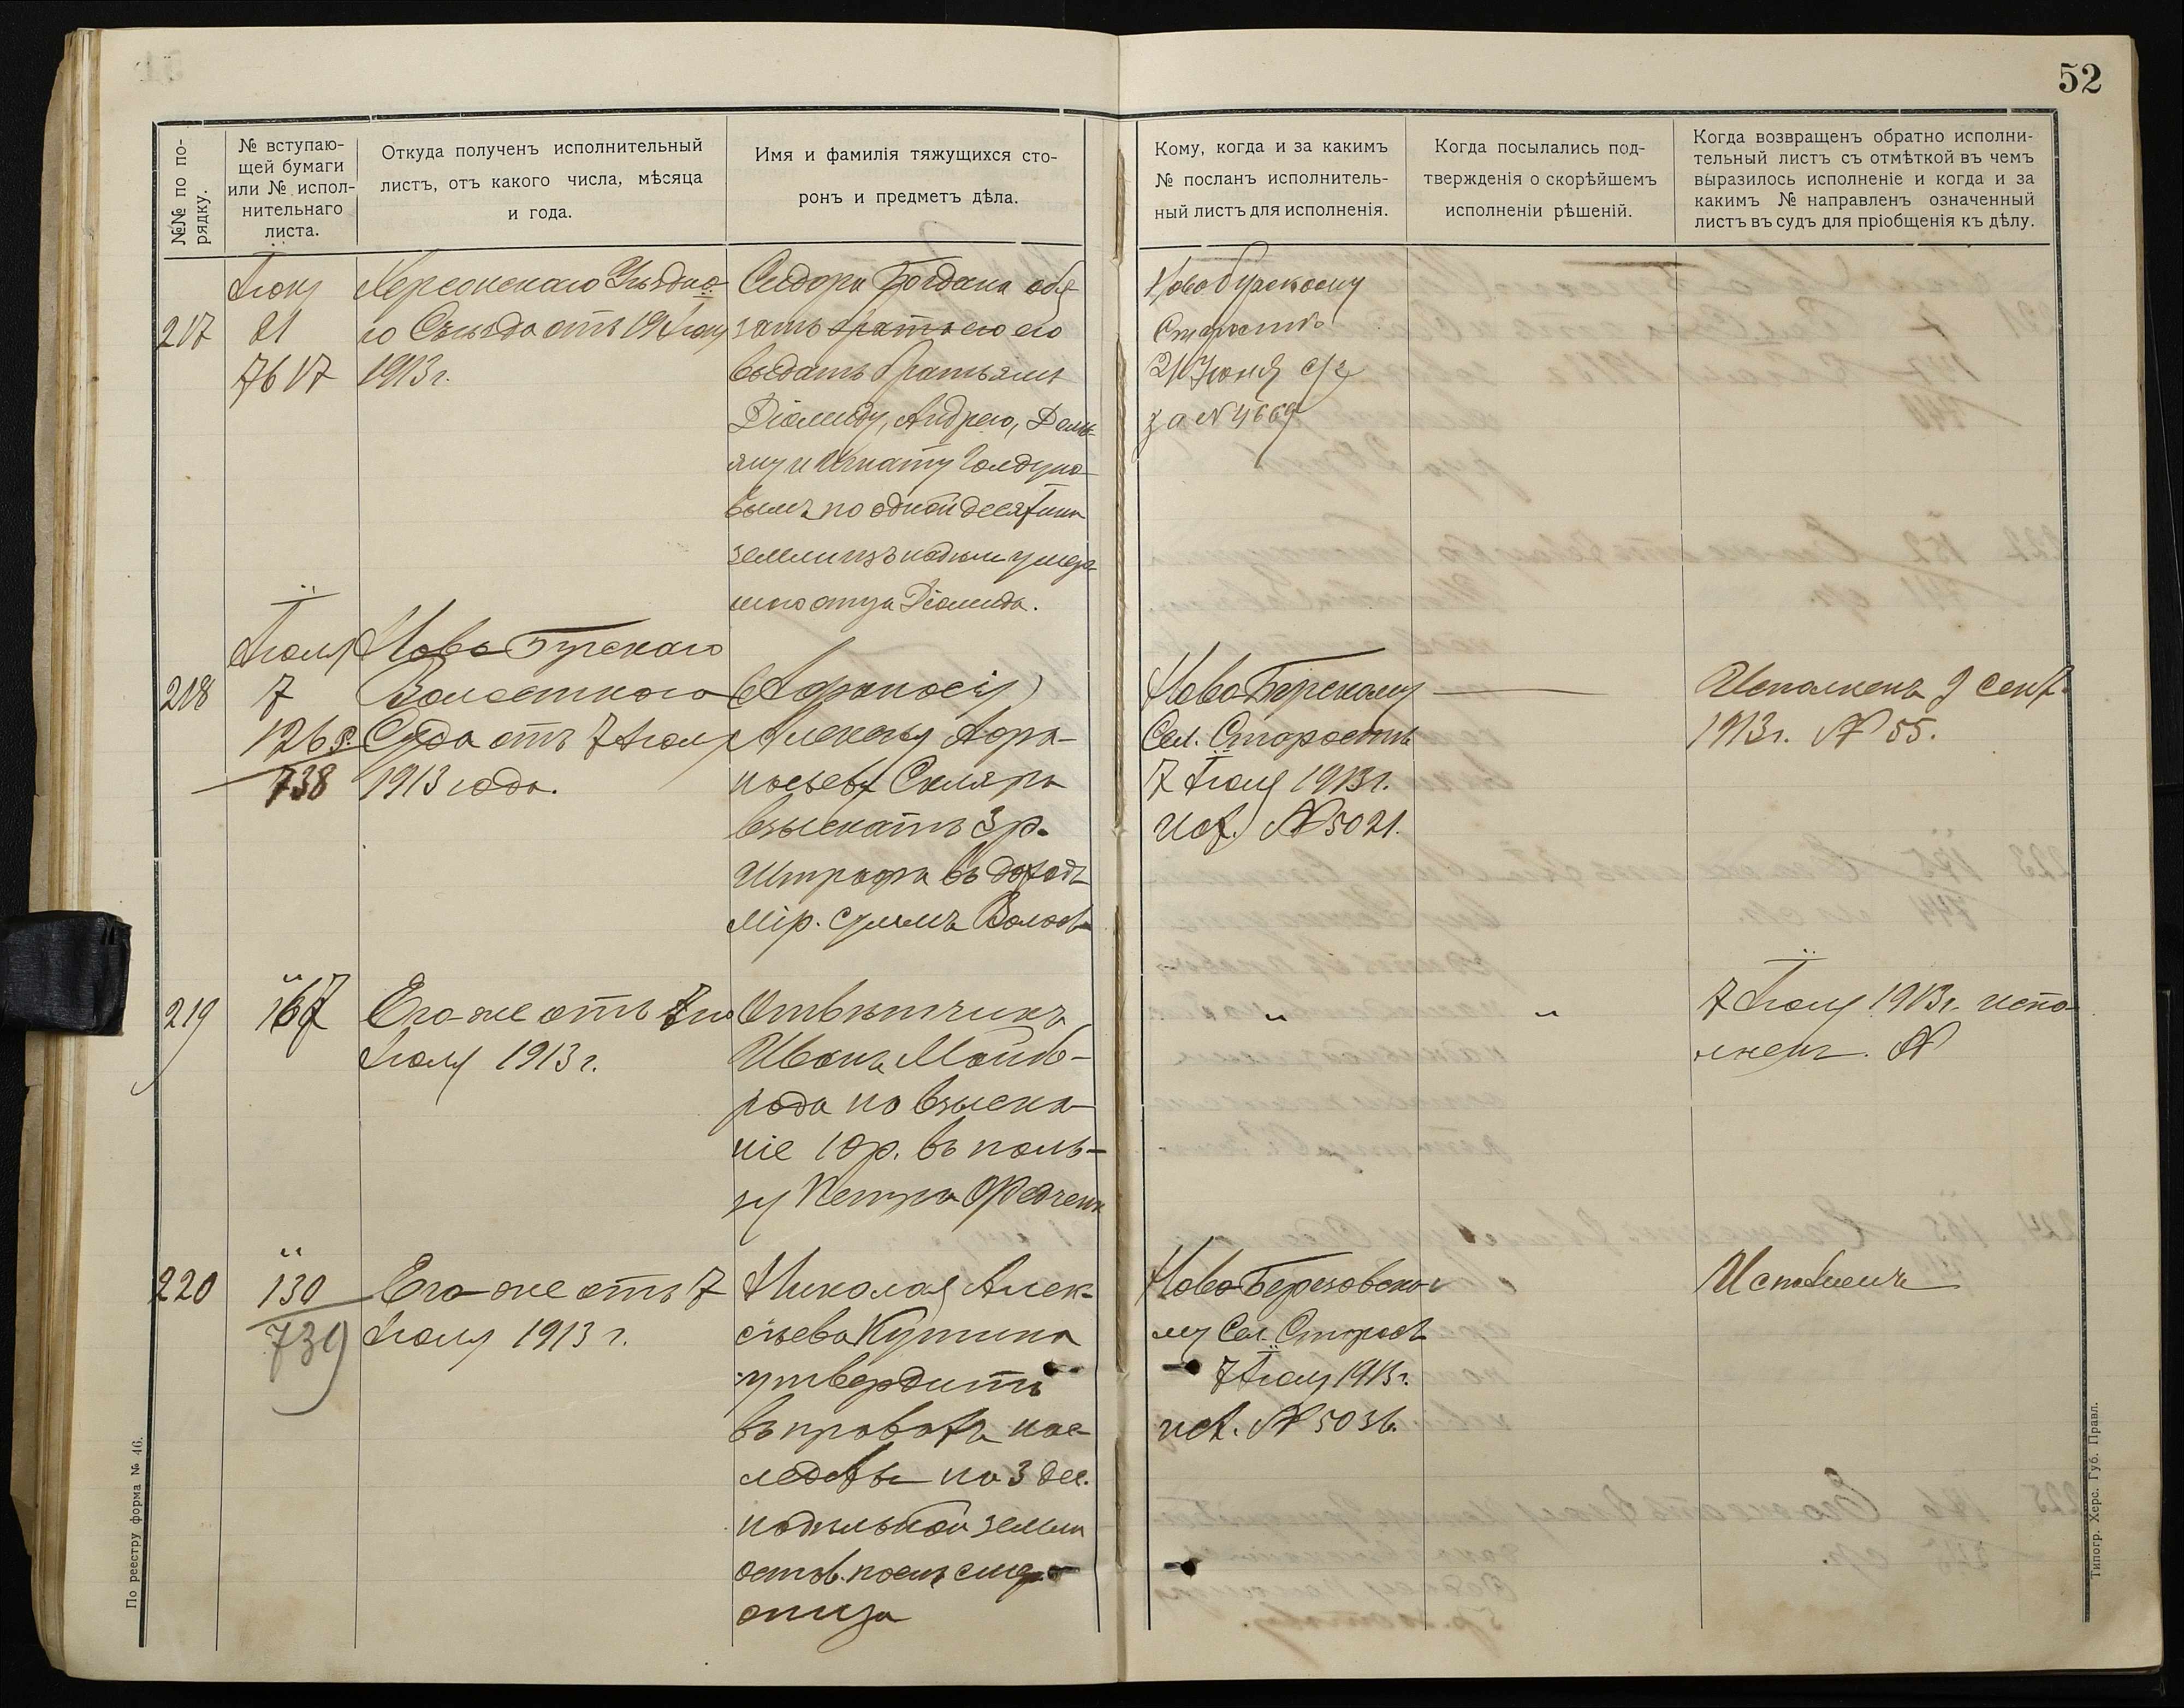 52
№№ по по-
рядку.
№ вступаю-
щей бумаги
или № испол-
нительнаго
листа.
Откуда полученъ исполнительный
листъ, отъ какого числа, мѣсяца
и года.
Имя и фамилія тяжущихся сто-
ронъ и предметъ дѣла.
Кому, когда и за какимъ
№ посланъ исполнитель-
ный листъ для исполненія.
Когда посылались под-
твержденія о скорѣйшемъ
исполненіи рѣшеній.
Когда возвращенъ обратно исполни-
тельный листъ съ отмѣткой въ чемъ
выразилось исполненіе и когда и за
какимъ № направленъ означенный
листъ въ судъ для пріобщенія къ дѣлу.
217
Іюня
21
7617
Херсонскаго Уѣздна-
го Съѣзда отъ 19 Іюня
1913 г.
Сидора Богдана обя-
зать его
выдать братьямъ
Діомиду, Андрею, Демь-
яну и Игнату
вымъ по одной десятинѣ
земли изъ надѣла умер-
шаго отца Діомида.
Новобугскому
Старостѣ
21 Іюня с/г
за № 4669
218
Іюля
7
126 р.
738
Ново-Бугскаго
Волостного
Суда отъ 7 Іюля
1913 года.
(Афанасія)
Алексѣя Афа-
насьева Скляра
взыскать 3 р.
Штрафа въ доходъ
мір. суммъ Волости
Ново-Бугскому
Сел. Старостѣ
7 Іюля 1913 г.
исх. № 5021.
Исполненъ 9 сент.
1913 г. № 55.
219
"
167
Его-же отъ 7го
Іюля 1913 г.
Отвѣтчикъ
Иванъ Майб-
рода по взыска-
ніе 10 р. въ поль-
зу Петра Федченк
"
"
7 Іюля 1913 г. испо-
лненъ. №
220
"
130
739
Его-же отъ 7
Іюля 1913 г.
Николая Алек-
сѣева Кутина
утвердить
въ правахъ нас-
ледства на 3 дес.
надѣльной земли
остав. послѣ смерт
отца
Ново-Березовско-
му Сел. Старостѣ
7 Іюля 1913 г.
исх. № 5036.
Исполненъ
По реестру форма № 46.
Типогр. Херс. Губ. Правл.